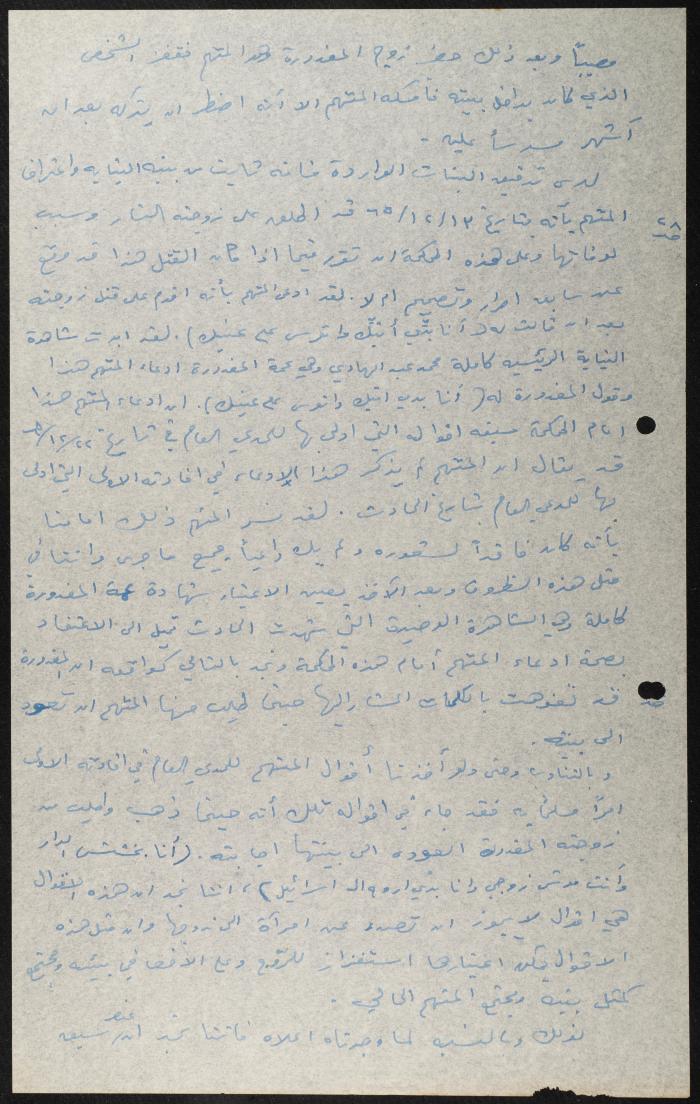 مصيباً وبعد ذلك حضر زوج المغدورة وهو المتهم فقفز الشخص
الذي كان بداخل بيته فأمسكه المتهم الا أنه اضطر ان يتركه بعد ان
أشهر مسدساً عليه .
لدى تدقيق البينات الواردة فانه ثابت من بينه النيابه واعتراف
المتهم بأنه بتاريخ ١٣/١٢/٦٥ قد اطلق على زوجته النار وسبب
لوفاتها وعلى هذه المحكمة ان تقرر فيما اذا كان القتل هذا قد وقع
عن سابق اصرار وتصميم ام لا . لقد ادعى المتهم بأنه اقدم على قتل زوجته
بعد ان قالت له ( أنا بدي أنيك وادوس على عينيك ) . لقد ايدت شاهدة
النيابة الرئيسيه كاملة محمد عبد الهادي وهي عمة المغدورة ادعاء المتهم هذا
وقول المغدورة له ( أنا بدي انيك وادوس على عينيك ) . ان ادعاء المتهم هذا
امام المحكمة سبقه اقواله التي ادلى بها للمدعي العام في تاريخ ٢٢/١٢/
قد يقال ان المتهم لم يذكر هذا الادعاء في افادته الاولى التي ادلى
بها للمدعي العام بتاريخ الحادث . لقد فسر المتهم ذلك امامنا
بأنه كان فاقداً لشعوره ولم يك واعياً جميع ما جرى واننا في
مثل هذه الظروف وبعد الأخذ بعين الاعتبار شهادة عمة المغدورة
كاملة وهي الشاهدة الوحيدة التي شهدت الحادث نميل الى الاعتقاد
بصحة ادعاء المتهم أمام هذه المحكمة ونجد بالتالي كواقعه ان المغدورة
قد تفوهت بالكلمات المشار اليها حينما طلب منها المتهم ان تعود
الى بيته .
وبالتناوب وحتى ولو أخذنا أقوال المتهم للمدعي العام في افادته الاولى
امراً مسلماً به فقد جاء في اقواله تلك أنه حينما ذهب وطلب من
زوجته المغدورة العوده الى بيتها اجابته . ( أنا بخشش الدار
وأنت مدش زوجي وانا بدي اروح الى اسرائيل ) ، اننا نجد ان هذه الاقوال
هي اقوال لا يجوز ان تصدر عن امرأة الى زوجها وان مثل هذه
الاقوال يمكن اعتبارها استفزاز للزوج وعلى الأخص في بيئه ومجتمع
كمثل بيئه ومجتمع المتهم الحالي .
لذلك وبالنسبه لما وجدناه اعلاه فاننا نجد ان عنصر سبق